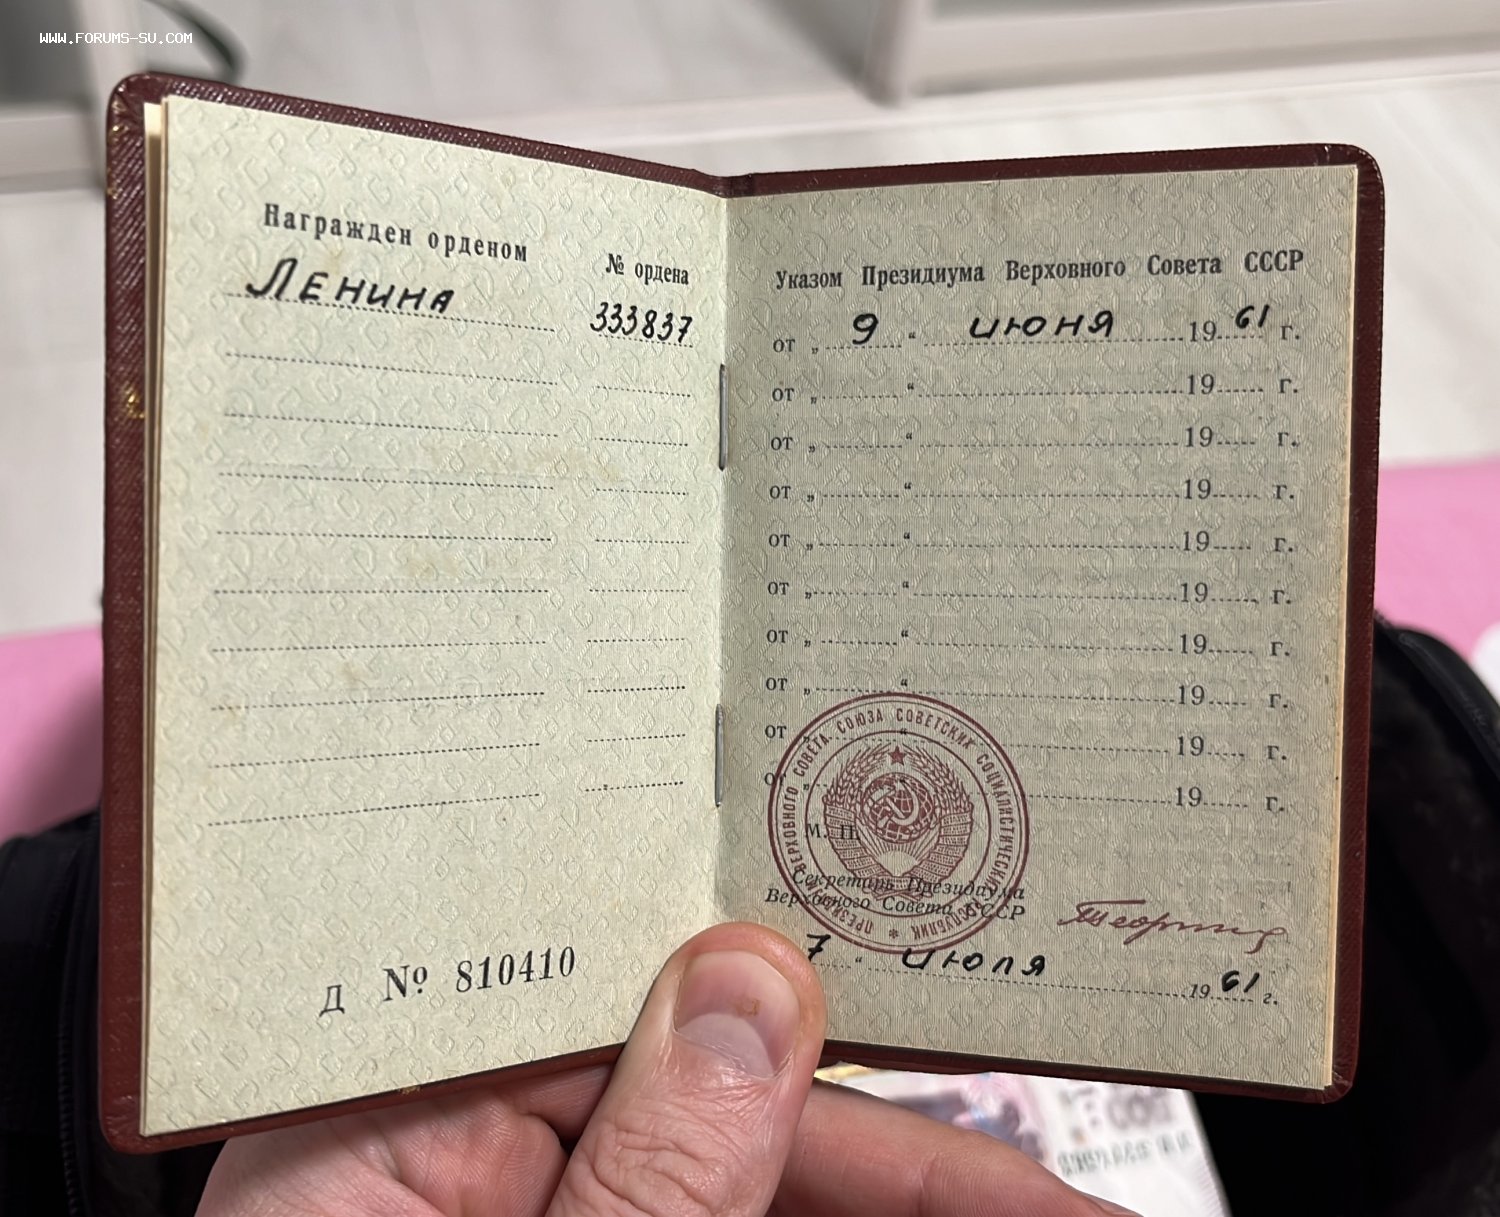 WWW.FORUMS-SU.COM
Награжден орденом № ордена
Ленина 333837
Д № 810410
Указом Президиума Верховного Совета СССР
от „ 9 “ июня 19 61 г.
от „ “ 19 г.
от „ “ 19 г.
от „ “ 19 г.
от „ “ 19 г.
от „ “ 19 г.
от „ “ 19 г.
от „ “ 19 г.
от „ “ 19 г.
от „ 19 г.
М. П.
ПРЕЗИДИУМ ВЕРХОВНОГО СОВЕТА СОЮЗА СОВЕТСКИХ СОЦИАЛИСТИЧЕСКИХ РЕСПУБЛИК
Секретарь Президиума
Верховного Совета СССР
7 “ июля 19 61 г.